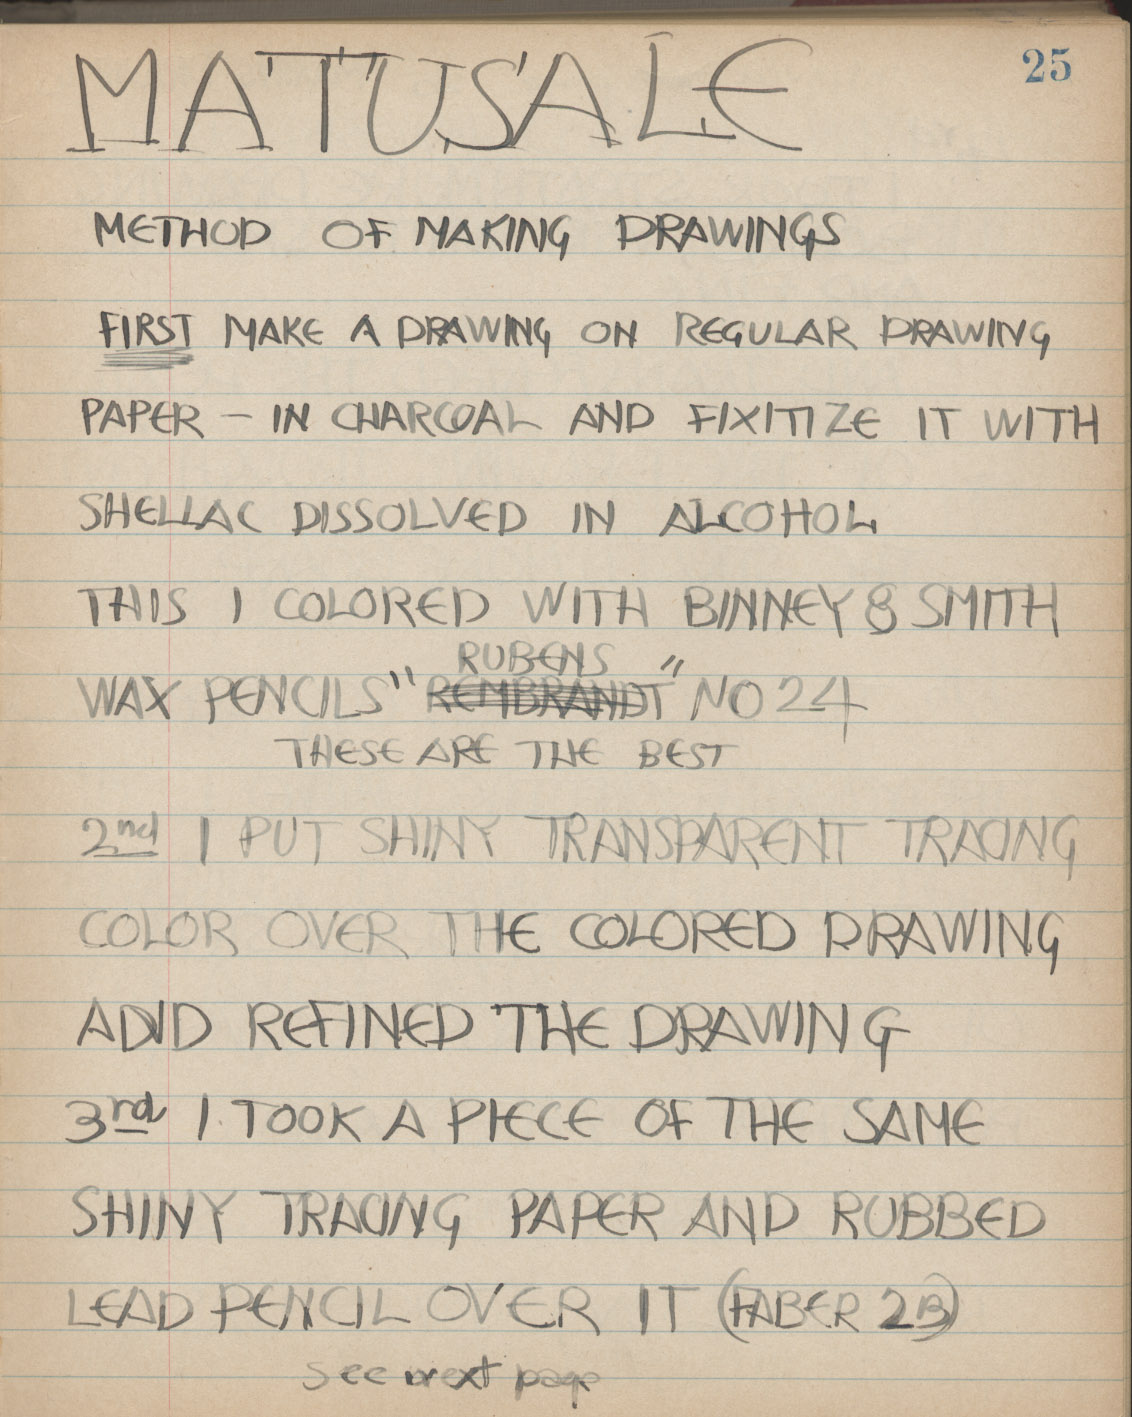 25
MATUSALE
METHOD OF MAKING DRAWINGS
FIRST MAKE A DRAWING ON REGULAR DRAWING
PAPER — IN CHARCOAL AND FIXITIZE IT WITH
SHELLAC DISSOLVED IN ALCOHOL
THIS I COLORED WITH BINNEY & SMITH
RUBENS
WAX PENCILS "REMBRANDT" NO 24
THESE ARE THE BEST
2nd I PUT SHINY TRANSPARENT TRACING
COLOR OVER THE COLORED DRAWING
ADND REFINED THE DRAWING
3rd I TOOK A PIECE OF THE SAME
SHINY TRACING PAPER AND RUBBED
LEAD PENCIL OVER IT (FABER 2B)
See next page